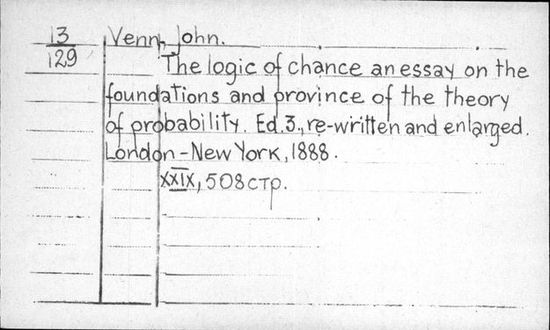 13 Venn, John.
129
The logic of chance an essay on the
foundations and province of the theory
of probability. Ed. 3., re-written and enlarged.
London - New York, 1888.
XXIX, 508 стр.